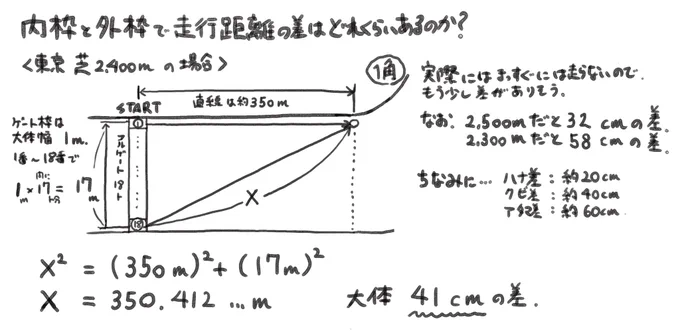 内枠と外枠で走行距離の差はどれくらいあるのか?
<東京 芝2,400mの場合>
START
直線は約350m
1角
ゲート枠は
大体幅 1m.
1番〜18番で
1m×17個分=17m
内に
フルゲート18ト
1
18
17m
X
実際にはまっすぐには走らないので、
もう少し差がありそう。
なお、2,500mだと32cmの差.
2,300mだと58cmの差.
ちなみに… ハナ差:約20cm
クビ差:約40cm
アタマ差:約60cm
X² = (350m)² + (17m)²
X = 350.412…m
大体 41cmの差.